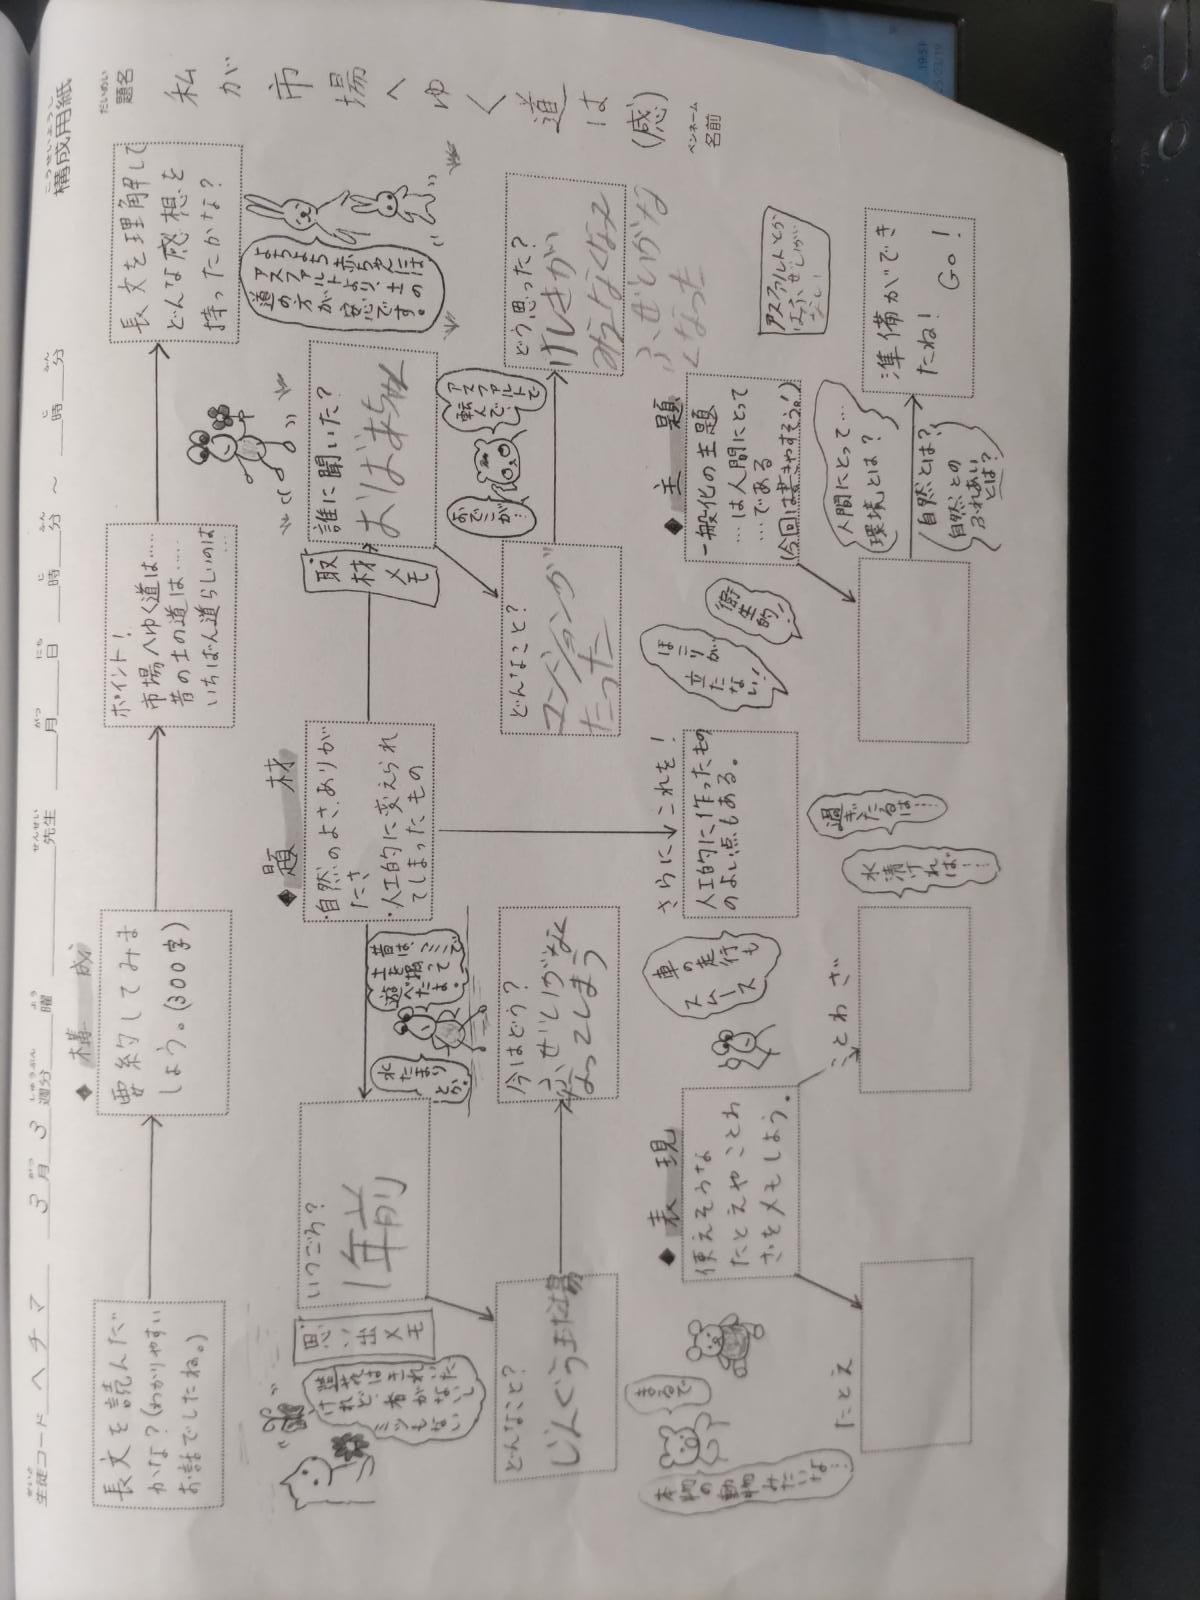 こうせいようし
構成用紙
せいと
生徒コード ヘチマ 3月3週分 曜 先生 月 日 時 分 ～ 時 分
だいめい
題名
私が市場へゆく道は(感)
ペンネーム
名前
◆構成
長文を読んだ
かな？(わかりやすい
お話でしたね。)
要約してみま
しょう。(300字)
ポイント！
市場へゆく道は……
昔の土の道は……
いちばん道らしいのは…
長文を理解して
どんな感想を
持ったかな？
よちよち赤ちゃんには
アスファルトより、土の
道の方が安心です。
◆題材
・自然のよさ、ありが
たさ
・人工的に変えられ
てしまったもの
思い出メモ
いつごろ？
1年前
昔は、
土を掘って
遊べたよ。
水たまり
とか。
どんなこと？
じんぐう球場
今はどう？
ふぜいがなく
なってしまう
取材メモ
誰に聞いた？
おばあちゃん
アスファルトで
転んで…
おでこが…
どんなこと？
マンションが
たった
どう思った？
けしきが
みえなくなって
ふぜいがな
くなった
アスファルトとか
はふぜいが
なし！
さらに これを！
人工的に作ったもの
のよい点もある。
車の走行も
スムーズ
ほこりが
立たない！
衛生的！
◆表現
使えそうな
たとえやことわ
ざをメモしよう。
まるで
本物の動物みたいな…
たとえ
ことわざ
水清ければ…
過ぎたるは……
◆主題
一般化の主題
…は人間にとって
…である
(今回は書きやすそう。！)
人間にとって…
環境とは？
自然とは？
自然との
ふれあい
とは？
準備ができ
たね！ GO！